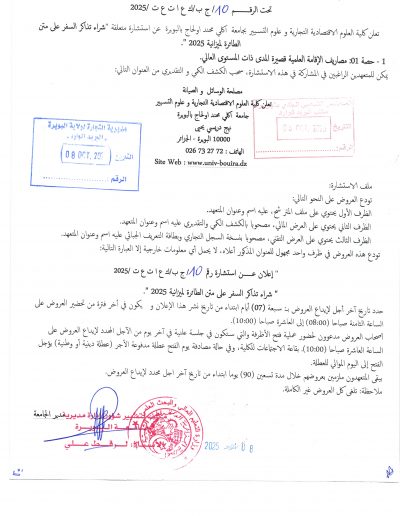 تحت الرقم 10/ج ب/ك ع ا ت ع ت /2025
تعلن كلية العلوم الاقتصادية التجارية و علوم التسيير بجامعة آكلي محند اولحاج بالبويرة عن استشارة متعلقة "شراء تذاكر السفر على متن
الطائرة لميزانية 2025 ".
1 - حصة 01: مصاريف الإقامة العلمية قصيرة المدى ذات المستوى العالي.
يمكن للمتعهدين الراغبين في المشاركة في هذه الاستشارة، سحب الكشف الكمي و التقديري من العنوان التالي:
مصلحة الوسائل و الصيانة
تعلن كلية العلوم الاقتصادية التجارية و علوم التسيير
جامعة آكلي محند أولحاج بالبويرة
نهج دريسي يحيى
10000 البويرة - الجزائر
الهاتف : 72 72 73 026
Site Web : www.univ-bouira.dz
مديرية التجارة لولاية البويرة
التاريخ
08 OCT. 2025
الرقم
التاريخ
الرقم
ملف الاستشارة:
تودع العروض على النحو التالي:
الظرف الأول يحتوي على ملف الترشح، عليه اسم وعنوان المتعهد.
الظرف الثاني يحتوي على العرض المالي، مصحوبا بالكشف الكمي والتقديري عليه اسم وعنوان المتعهد.
الظرف الثالث يحتوي على العرض التقني، مصحوبا بنسخة السجل التجاري وبطاقة التعريف الجبائي عليه اسم وعنوان المتعهد.
تودع هذه العروض في ظرف واحد مجهول للعنوان المذكور أعلاه، لا يحمل أي معلومات خارجية إلا العبارة التالية:
" إعلان عـــن استشارة رقم 10/ج ب/ك ع ا ت ع ت /2025
" شراء تذاكر السفر على متن الطائرة لميزانية 2025 ".
حدد تاريخ آخر أجل لإيداع العروض بـ: سبعة (07) أيام ابتداء من تاريخ نشر هذا الإعلان و يكون في آخر فترة من تحضير العروض على
الساعة الثامنة صباحا (08:00) إلى العاشرة صباحا (10:00).
أصحاب العروض مدعوون لحضور عملية فتح الأظرفة والتي ستكون في جلسة علنية في آخر يوم من الأجل المحدد لإيداع العروض على
الساعة العاشرة صباحا (10:00). بقاعة الاجتماعات للكلية، وفي حالة مصادفة يوم الفتح عطلة مدفوعة الأجر (عطلة دينية أو وطنية) يؤجل
الفتح إلى اليوم الموالي للعطلة.
يبقى المتعهدون ملزمين بعروضهم خلال مدة تسعين (90) يوما ابتداء من تاريخ آخر أجل محدد لإيداع العروض.
ملاحظة: تلغى كل العروض غير الكاملة.
مدير الجامعة
08 2025